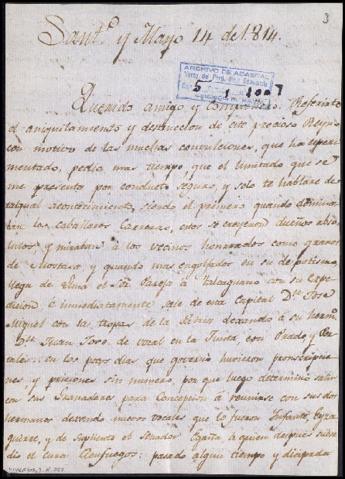 3
Sant.º y Mayo 14 de 1814.
ARCHIVO DE ABASCAL
5 1 2007
Querido amigo y Compañero: Referirte
el aniquilamiento y destruccion de este precioso Reyno
con motivo de las muchas convulciones, que ha experi
mentado, pedia mas tiempo que el limitado que se
me presenta por conducto seguro, y solo te hablare de
tal qual acontecimiento, siendo el primero quando domina-
ban los caballeros Carreras, estos se creyeron dueños abso
lutos y miraban a los vecinos honrados como granos
de Mostaza y quando mas engolfados en su despotismo
llega de Lima el Sr Pareja à Talcaguano con su Expe
dicion é inmediatamente sale de esta Capital Dn Jose
Miguel con las tropas de la Patria dexando à su herm.º
Dn Juan José de vocal en la Junta, con Prado y
en los pocos dias que governò hicieron proscripcio
nes, y priciones sin numero, por que luego determinò salir
con sus Granaderos para Concepcion à reunirse con sus dos
hermanos dexando nuevos vocales que lo fueron Infante, Eyza
guirre, y de Suplente el Senador Egaña à quien despues subce
dio el Cura Cienfuegos: pasado algun tiempo y disipada